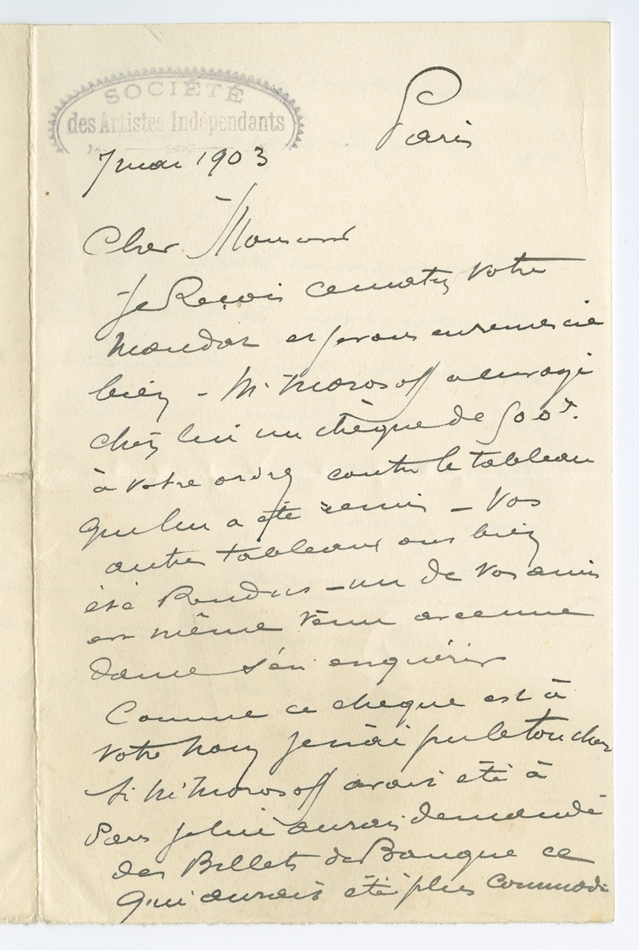 SOCIÉTÉ
des Artistes Indépendants
Paris
7 mai 1903
Cher Monsieur
Je Reçois ce matin votre
Mandat et je vous en remercie
bien - M. Morosoff a envoyé
chez lui un chèque de 500f.
à votre ordre contre le tableau
qui lui a été remis - Vos
autres tableaux ont bien
été Rendus - un de vos amis
est même venu avec une
dame s'en enquérir
Comme ce cheque est à
votre nom je n'ai pu le toucher
Si M. Morosoff avait été à
Paris je lui aurais demandé
des Billets de Banque ce
qui aurait été plus commode